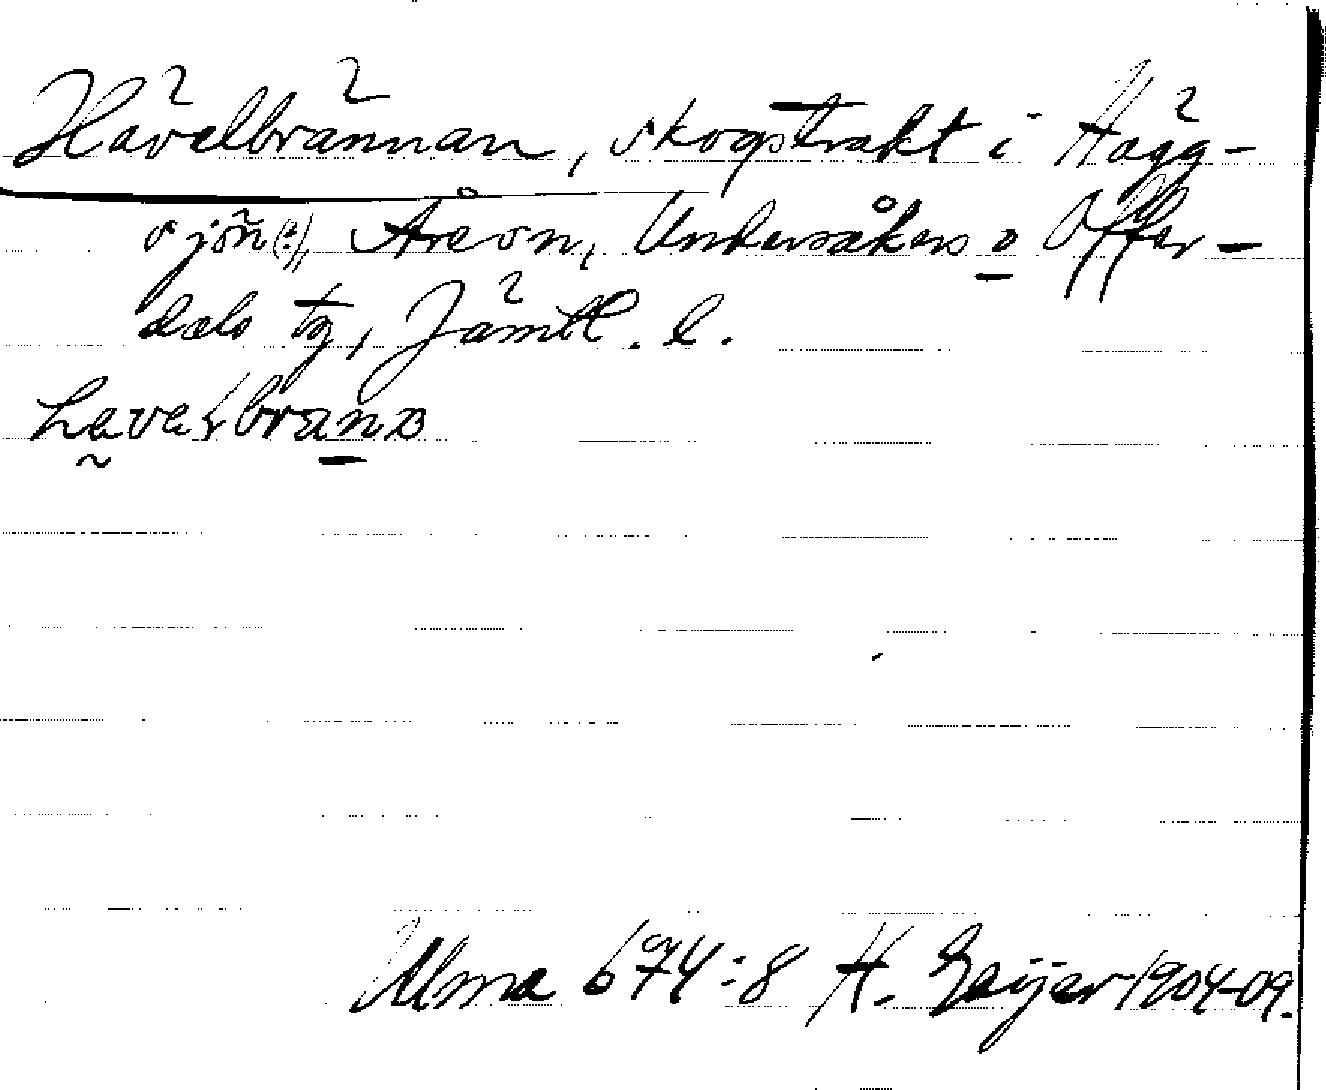 Hävelbrännan, skogstrakt i Hägg-
sjön(?), Åre sn, Undersåkers o Offer-
dals tg, Jämtl. l.
Ulma 674:8 H. Geijer 1904-09.